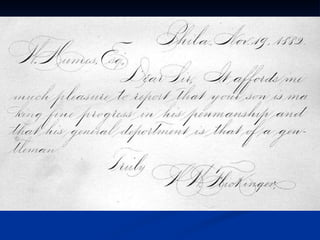 Phila, Nov. 19, 1882.
Esq,
Dear Sir, It affords me
much pleasure to report that your son is ma
king fine progress in his penmanship and
that his general deportment is that of a gen-
tleman
Truly
Flickinger